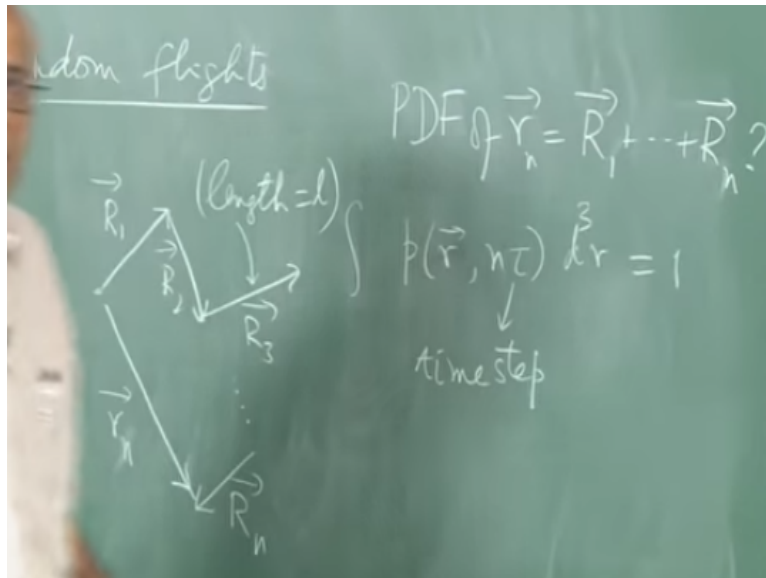 ndom flights
PDF of r⃗ₙ = R⃗₁ + ··· + R⃗ₙ ?
(length = l)
R⃗₁
R⃗₂
R⃗₃
∫ p(r⃗, nτ) d³r = 1
timestep
r⃗ₙ
⋮
R⃗ₙ